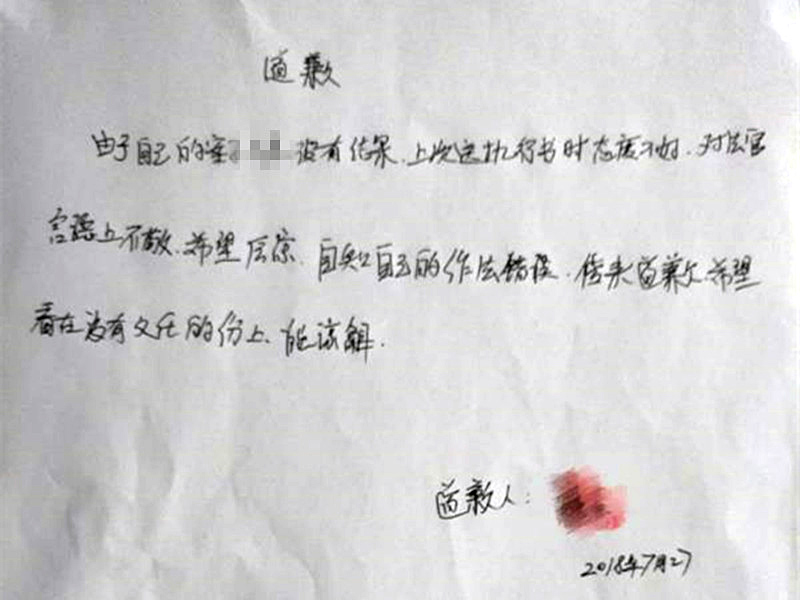 道歉
由于自己的案 没有结果.上次送执行书时态度不好.对法官
言语上不敬.希望原凉.自知自己的作法错误.传来道歉.希望
看在没有文化的份上、能谅解.
道歉人:
2018年7月27